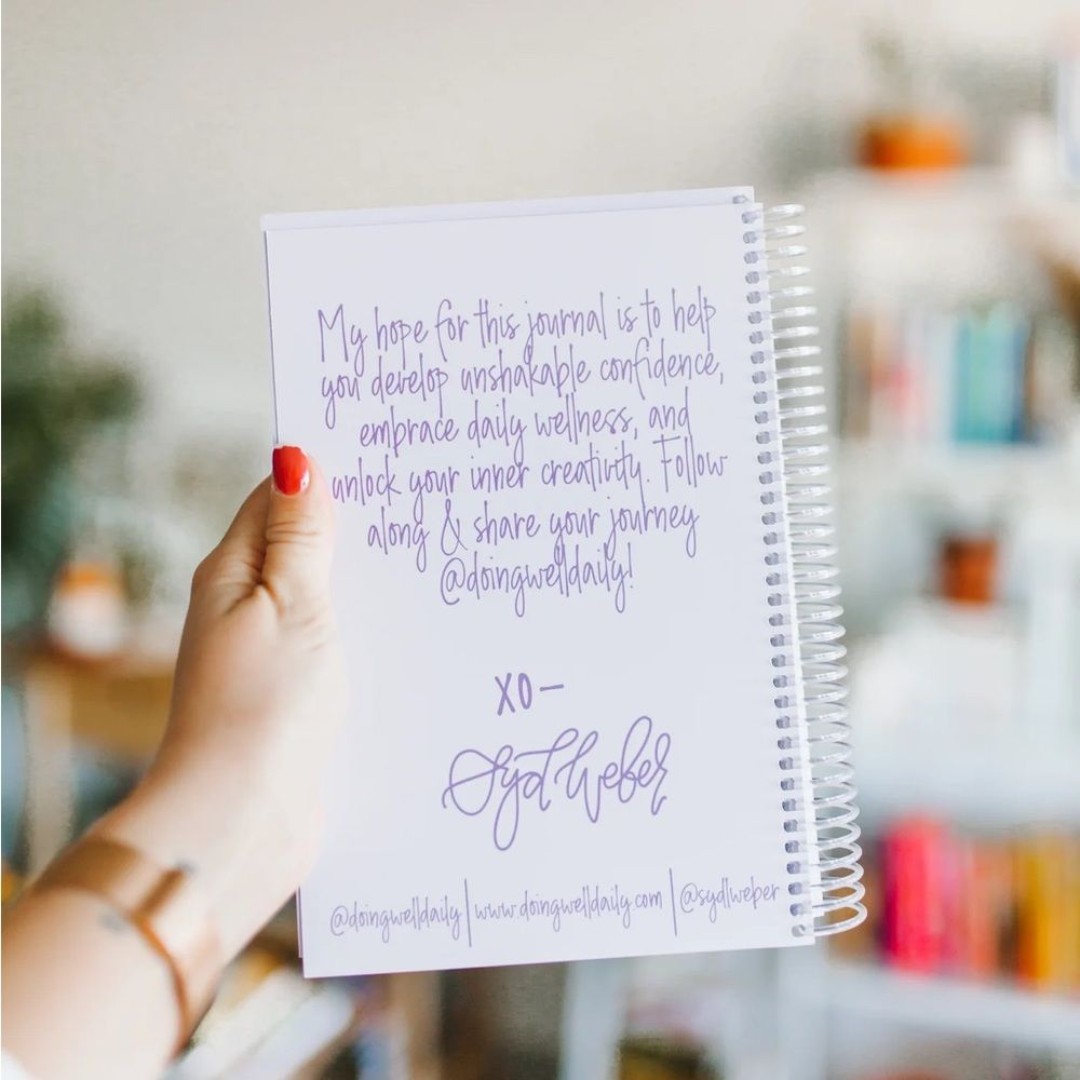 My hope for this journal is to help
you develop unshakable confidence,
embrace daily wellness, and
unlock your inner creativity. Follow
along & share your journey
@doingwelldaily!
XO—
Syd Weber
@doingwelldaily | www.doingwelldaily.com | @sydlweber